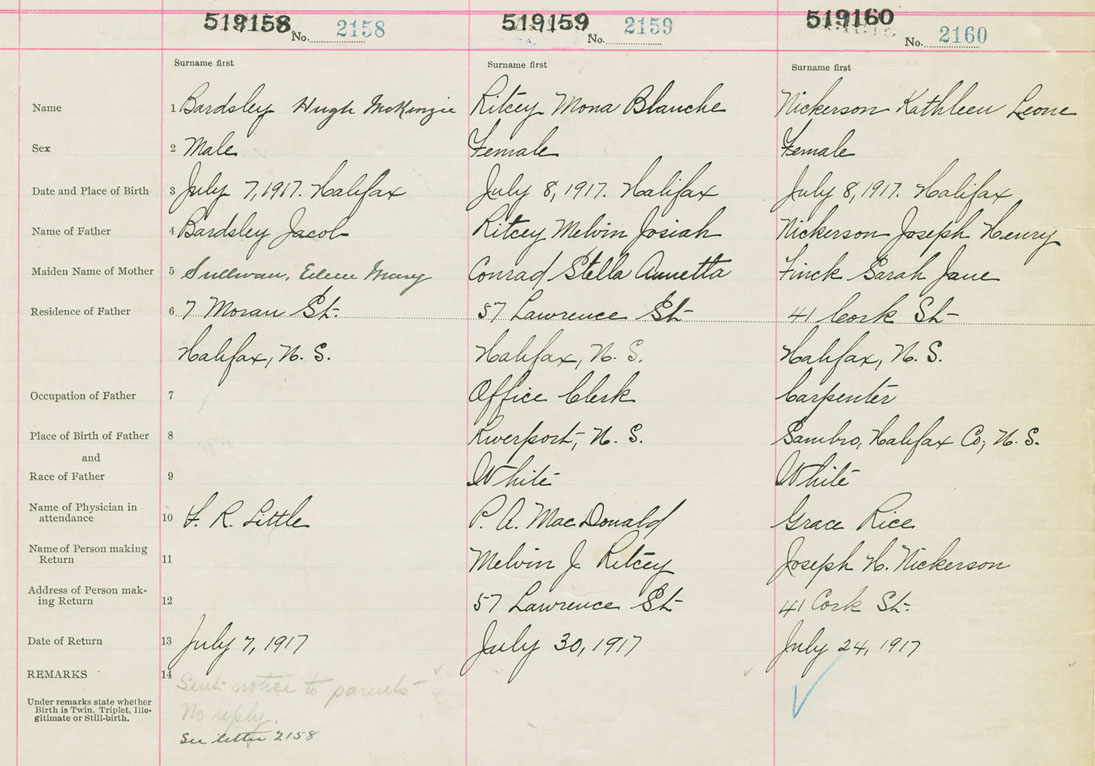 519158 519159 519160
No. 2158 No. 2159 No. 2160
Surname first Surname first Surname first
Name 1 Bardsley Hugh McKinzie Ritcey Mona Blanche Nickerson Kathleen Leone
Sex 2 Male Female Female
Date and Place of Birth 3 July 7, 1917. Halifax July 8, 1917. Halifax July 8, 1917. Halifax
Name of Father 4 Bardsley Jacob Ritcey Melvin Josiah Nickerson Joseph Henry
Maiden Name of Mother 5 Sullivan, Eileen Mary Conrad Stella Annetta Finck Sarah Jane
Residence of Father 6 7 Moran St. 57 Lawrence St 41 Cork St
Halifax, N. S. Halifax, N. S. Halifax, N. S.
Occupation of Father 7 Office Clerk Carpenter
Place of Birth of Father 8 Riverport, N. S. Sambro, Halifax Co, N. S.
and
Race of Father 9 White White
Name of Physician in
attendance 10 F. R. Little P. A. MacDonald Grace Rice
Name of Person making
Return 11 Melvin J. Ritcey Joseph H. Nickerson
Address of Person mak-
ing Return 12 57 Lawrence St 41 Cork St.
Date of Return 13 July 7, 1917 July 30, 1917 July 24, 1917
REMARKS 14 Sent notice to parents
Under remarks state whether
Birth is Twin, Triplet, Ille-
gitimate or Still-birth.
No reply.
See letter 2158